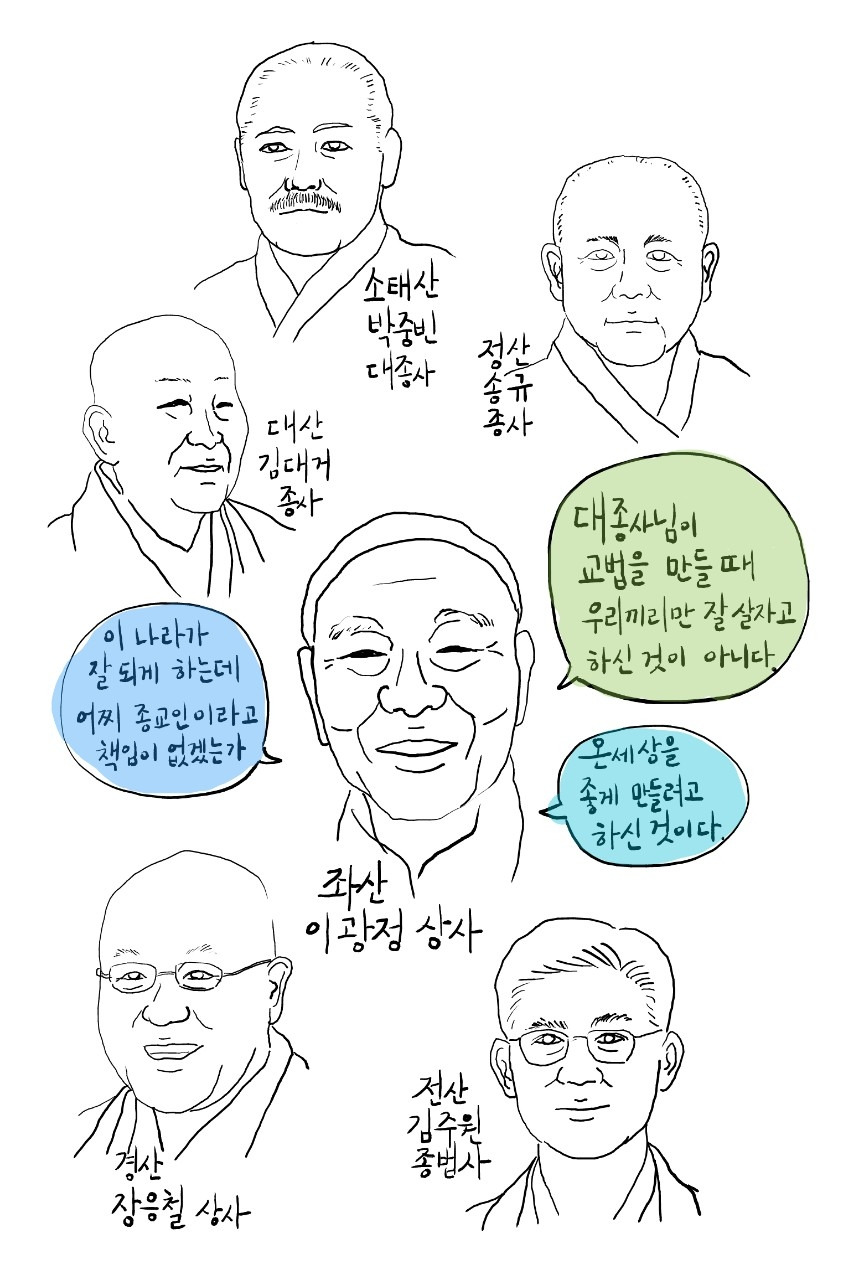 소태산
박중빈
대종사
정산
송규
종사
대산
김대거
종사
대종사님이
교법을 만들 때
우리끼리만 잘 살자고
하신 것이 아니다.
이 나라가
잘 되게 하는데
어찌 종교인이라고
책임이 없겠는가
온세상을
좋게 만들려고
하신 것이다.
좌산
이광정 상사
경산
장응철 상사
전산
김주원
종법사